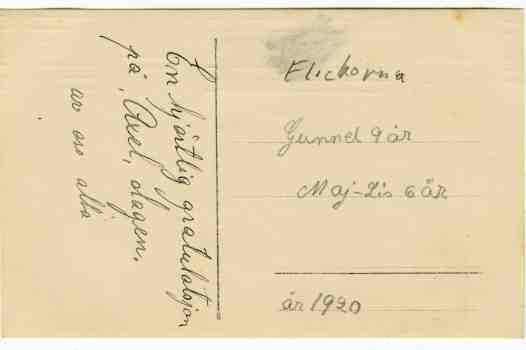 En hjärtlig gratulatsjon
på Axel, dagen.
av oss alla
Flickorna
Gunnel 9 år
Maj-Lis 6 år
år 1920